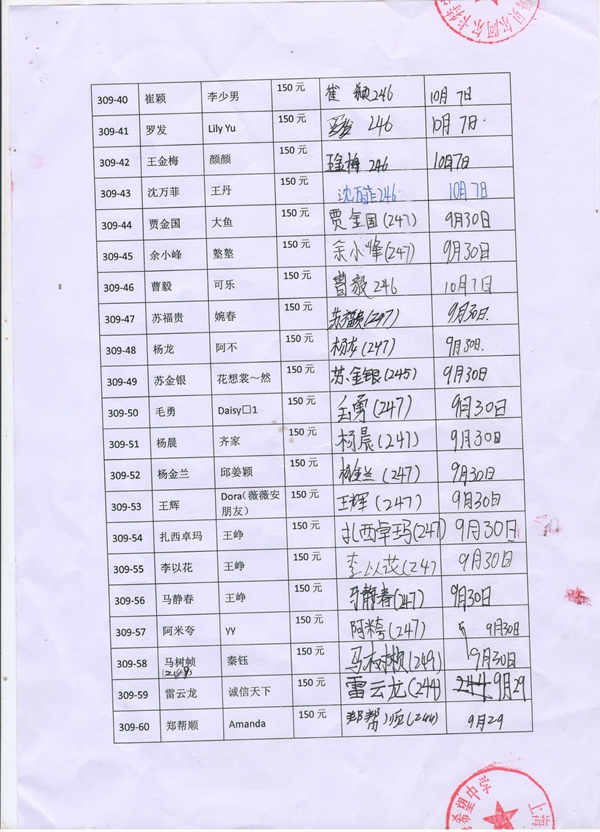 309-40 崔颖 李少男 150 元 崔颖 246 10月7日
309-41 罗发 Lily Yu 150 元 246 10月7日
309-42 王金梅 颜颜 150 元 王金梅 246 10月7日
309-43 沈万菲 王丹 150 元 沈万菲246 10月7日
309-44 贾金国 大鱼 150 元 贾金国(247) 9月30日
309-45 余小峰 整整 150 元 余小峰(247) 9月30日
309-46 曹毅 可乐 150 元 曹毅 246 10月7日
309-47 苏福贵 婉春 150 元 苏福贵(247) 9月30日
309-48 杨龙 阿不 150 元 杨龙(247) 9月30日
309-49 苏金银 花想裳～然 150 元 苏金银(245) 9月30日
309-50 毛勇 Daisy□1 150 元 毛勇(247) 9月30日
309-51 杨晨 齐家 150 元 杨晨(247) 9月30日
309-52 杨金兰 邱姜颖 150 元 杨金兰(247) 9月30日
309-53 王辉 Dora（薇薇安 150 元 王辉(247) 9月30日
朋友）
309-54 扎西卓玛 王峥 150 元 扎西卓玛(247) 9月30日
309-55 李以花 王峥 150 元 李以花(247 9月30日
309-56 马静春 王峥 150 元 马静春(247) 9月30日
309-57 阿米夸 yy 150 元 阿米夸(247) 9月30日
309-58 马树帧 秦钰 150 元 马树桢(249) 9月30日
309-59 雷云龙 诚信天下 150 元 雷云龙(244) 244 9月29
309-60 郑帮顺 Amanda 150 元 郑帮顺(244) 9月29
希望中学
上海